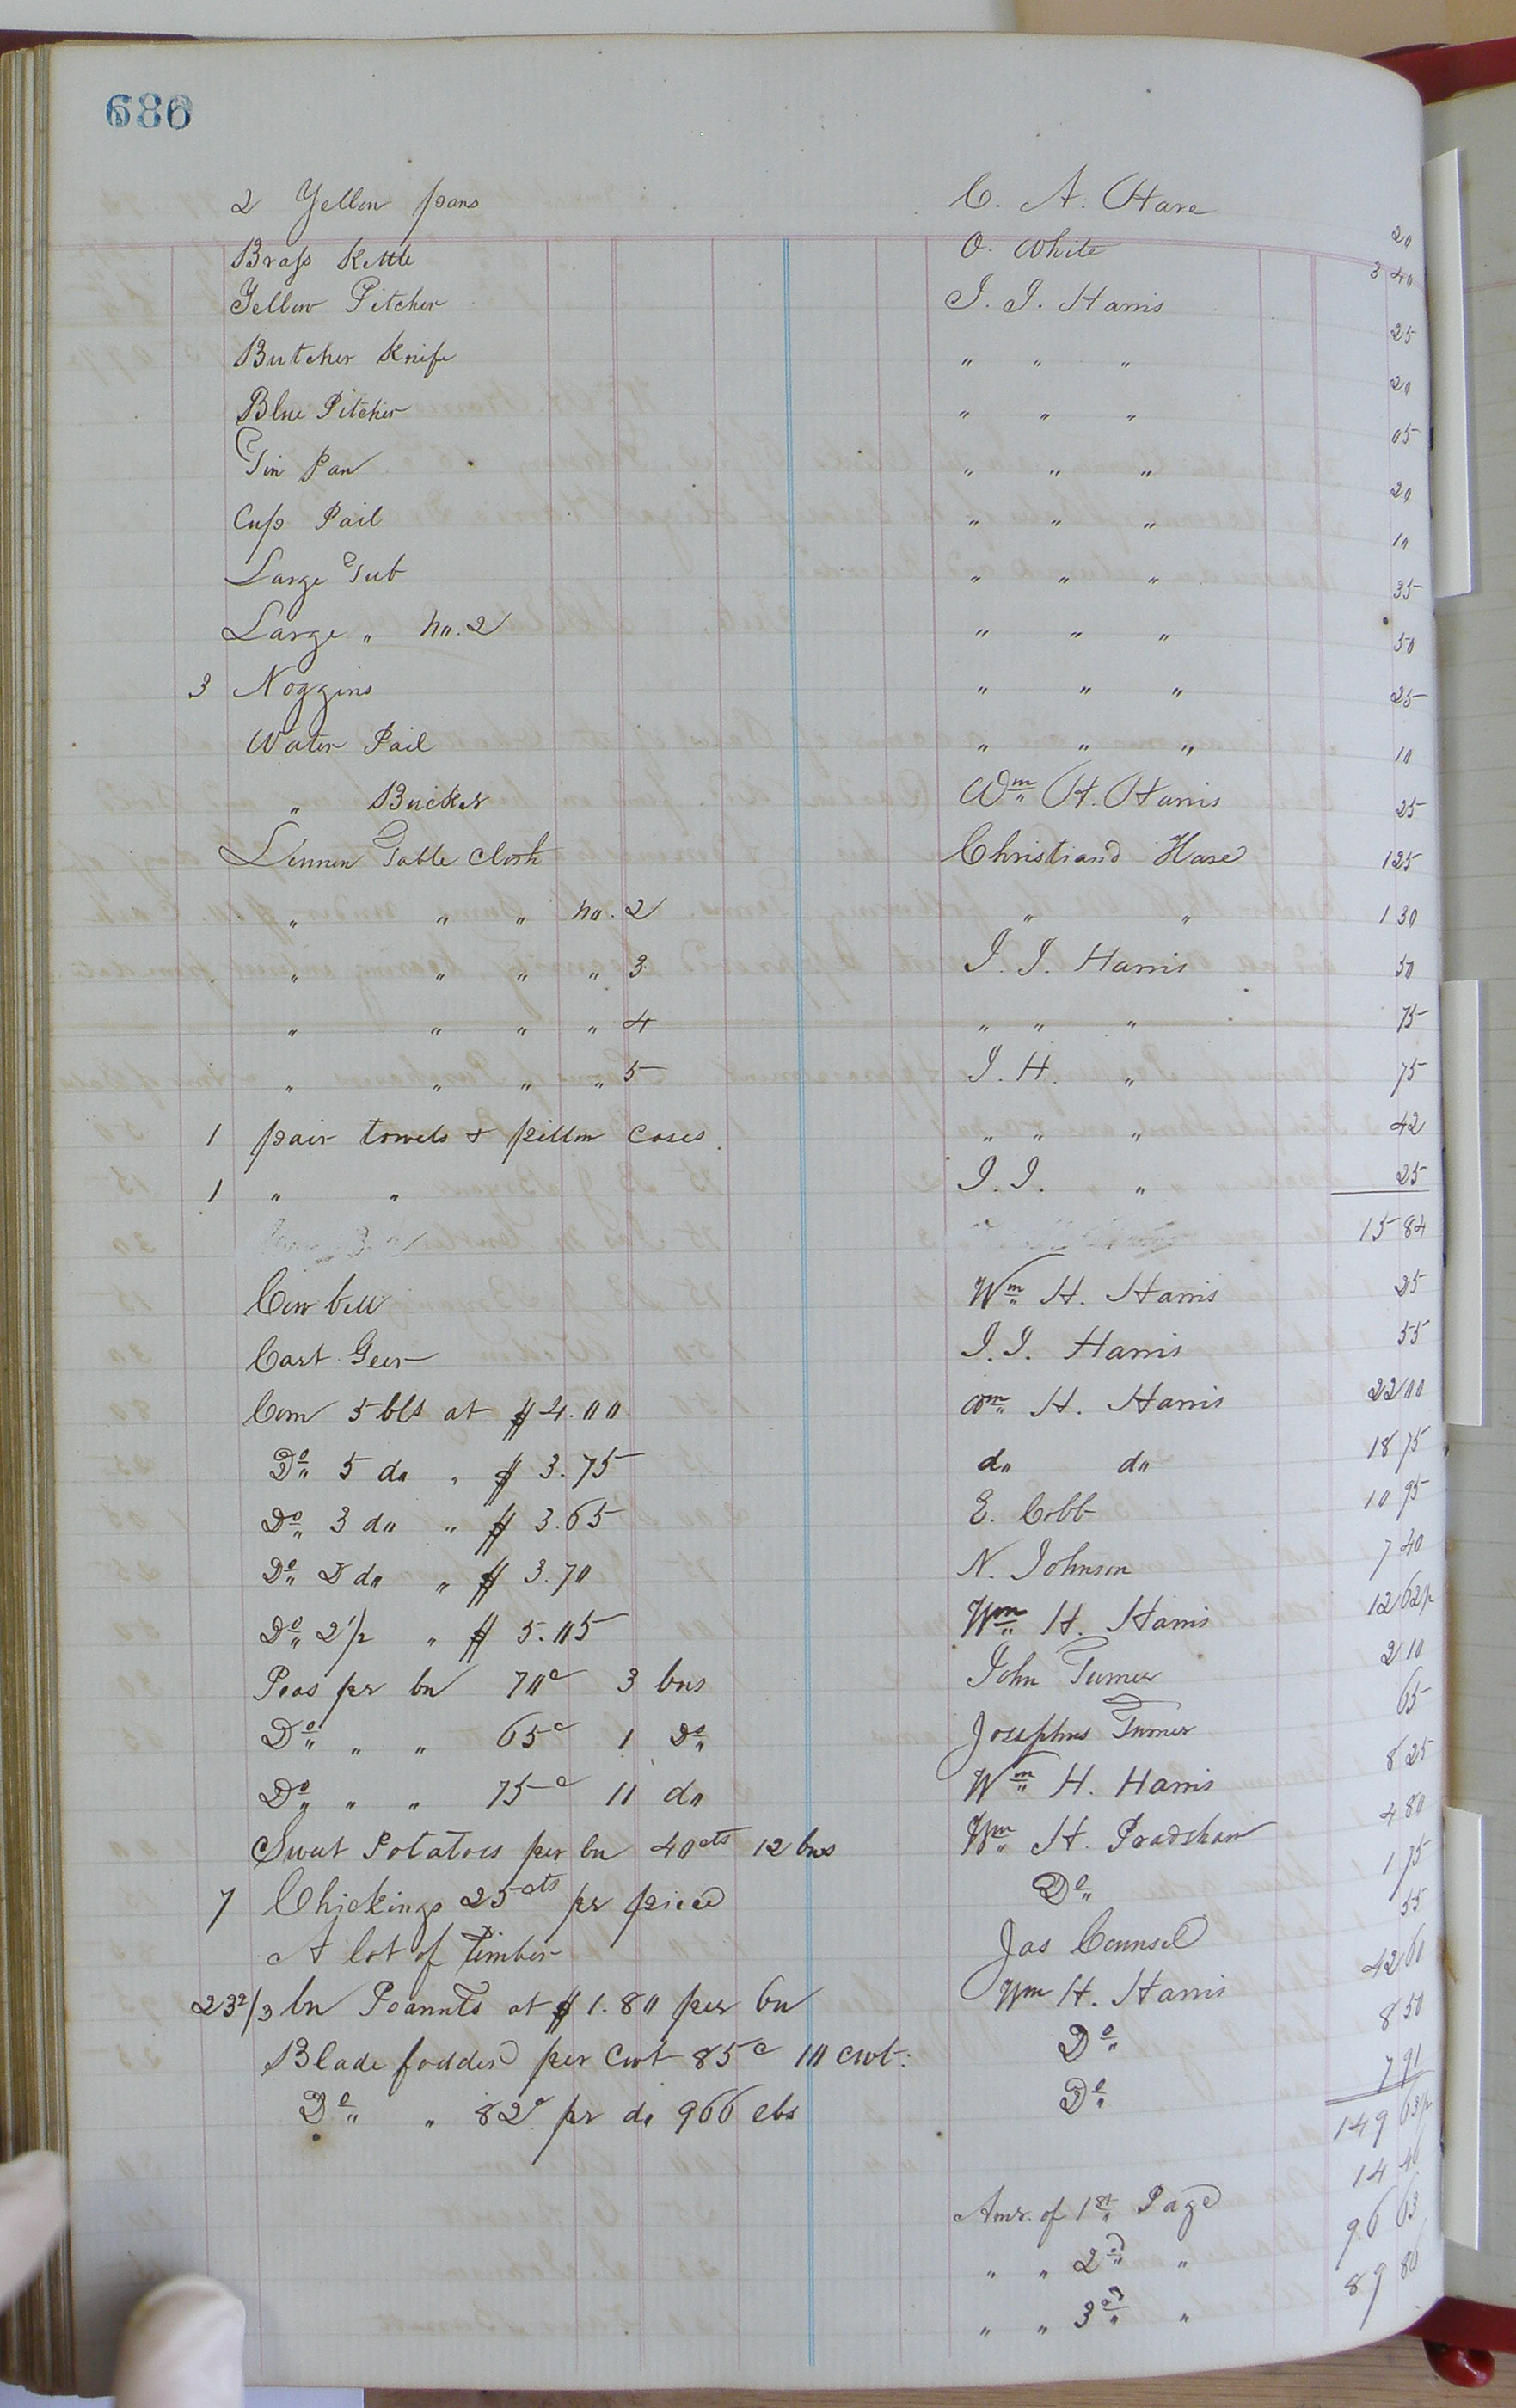 686
2 Yellow pans C. A. Hare 20
Brass Kettle O. White 3 40
Yellow Pitcher J. J. Harris 25
Butcher Knife " " " 20
Blue Pitcher " " " 05
Tin Pan " " " 20
Cup Pail " " " 10
Large Tub " " " 35
Large " No. 2 " " " 50
3 Noggins " " " 25
Water Pail " " " 10
" Bucket Wm H. Harris 25
Linnen Table cloth Christiand Hare 1 25
" " " No. 2 " " 1 30
" " " " 3 J. J. Harris 50
" " " " 4 " " " 75
" " " " 5 J. H. " 75
1 pair towels & pillow cases " " " 42
1 " " J. J. " 25
15 84
Cow bell Wm H. Harris 25
Cart Geer J. J. Harris 55
Corn 5 bls at $4.00 Wm H. Harris 22 00
Do 5 do " $ 3.75 do do 18 75
Do 3 do " $ 3.65 E. Cobb 10 95
Do 2 do " $ 3.70 N. Johnson 7 40
Do 2 1/2 " $ 5.05 Wm H. Harris 12 62 1/2
Peas per bu 70c 3 bus John Turner 2 10
Do " " 65c 1 Do Josephus Turner 65
Do " " 75c 11 do Wm H. Harris 8 25
Sweet Potatoes per bu 40cts 12 bus Wm H. Bradshaw 4 80
7 Chickings 25cts pr piece Do 1 75
A lot of Timber Jas Counsel 55
23 2/3 bu Peannts at $1.80 per bu Wm H. Harris 42 60
Blade fodder per cwt 85c 10 cwt. Do 8 50
Do " 82c pr do 966 lbs Do 7 91
149 63 1/2
Amt. of 1st Page 14 40
" " 2d " 96 63
" " 3d " 89 80